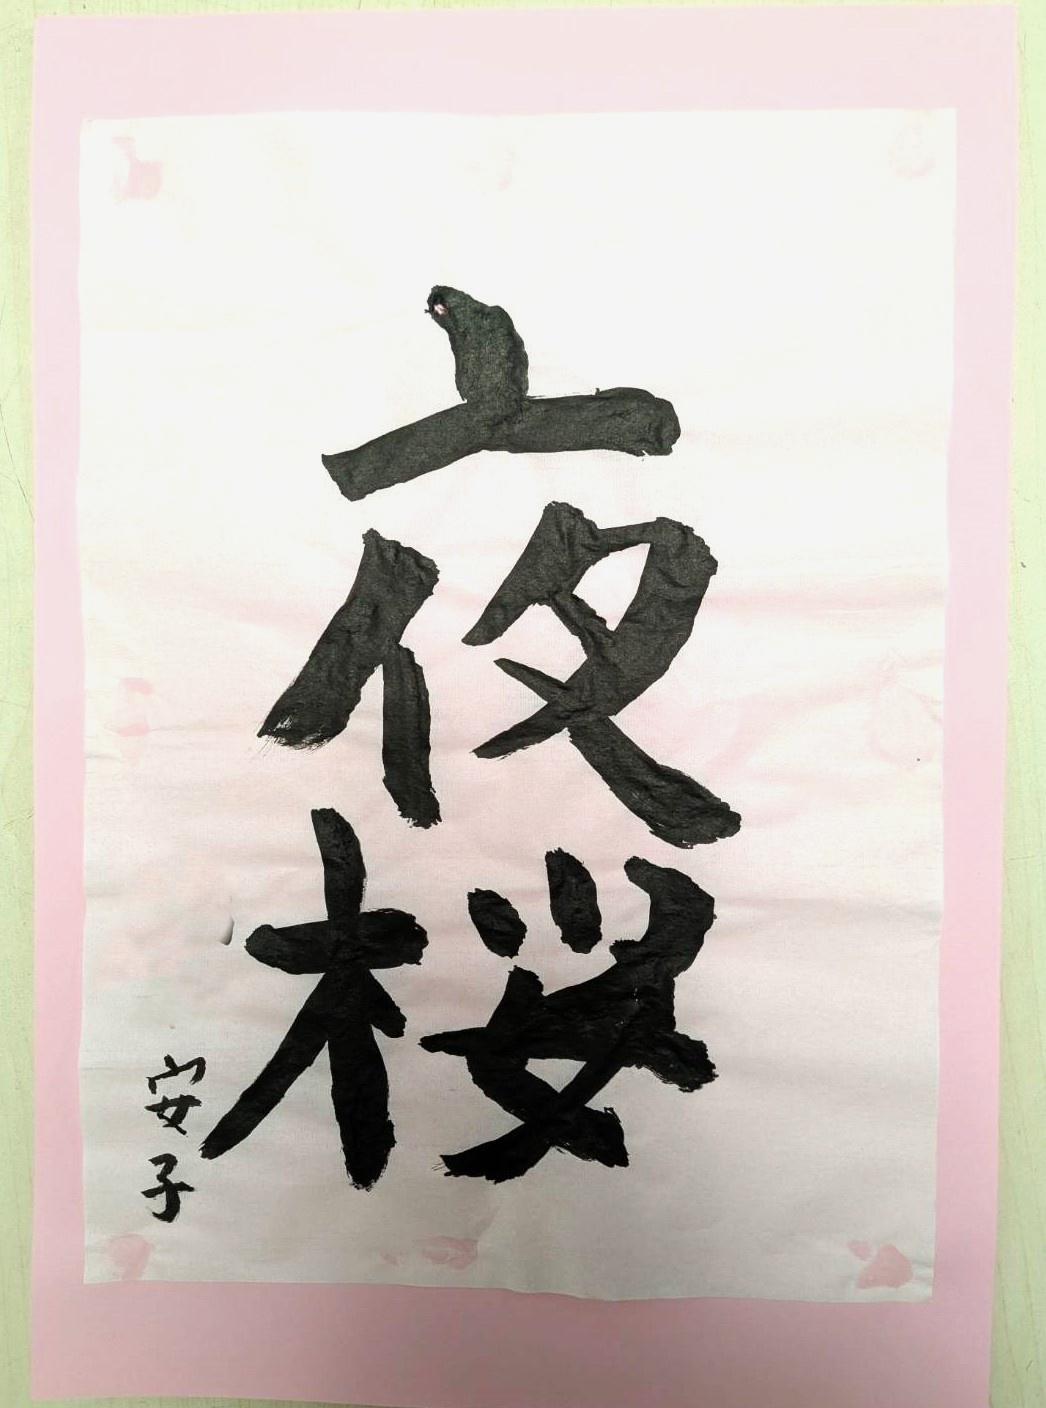 夜桜
安子